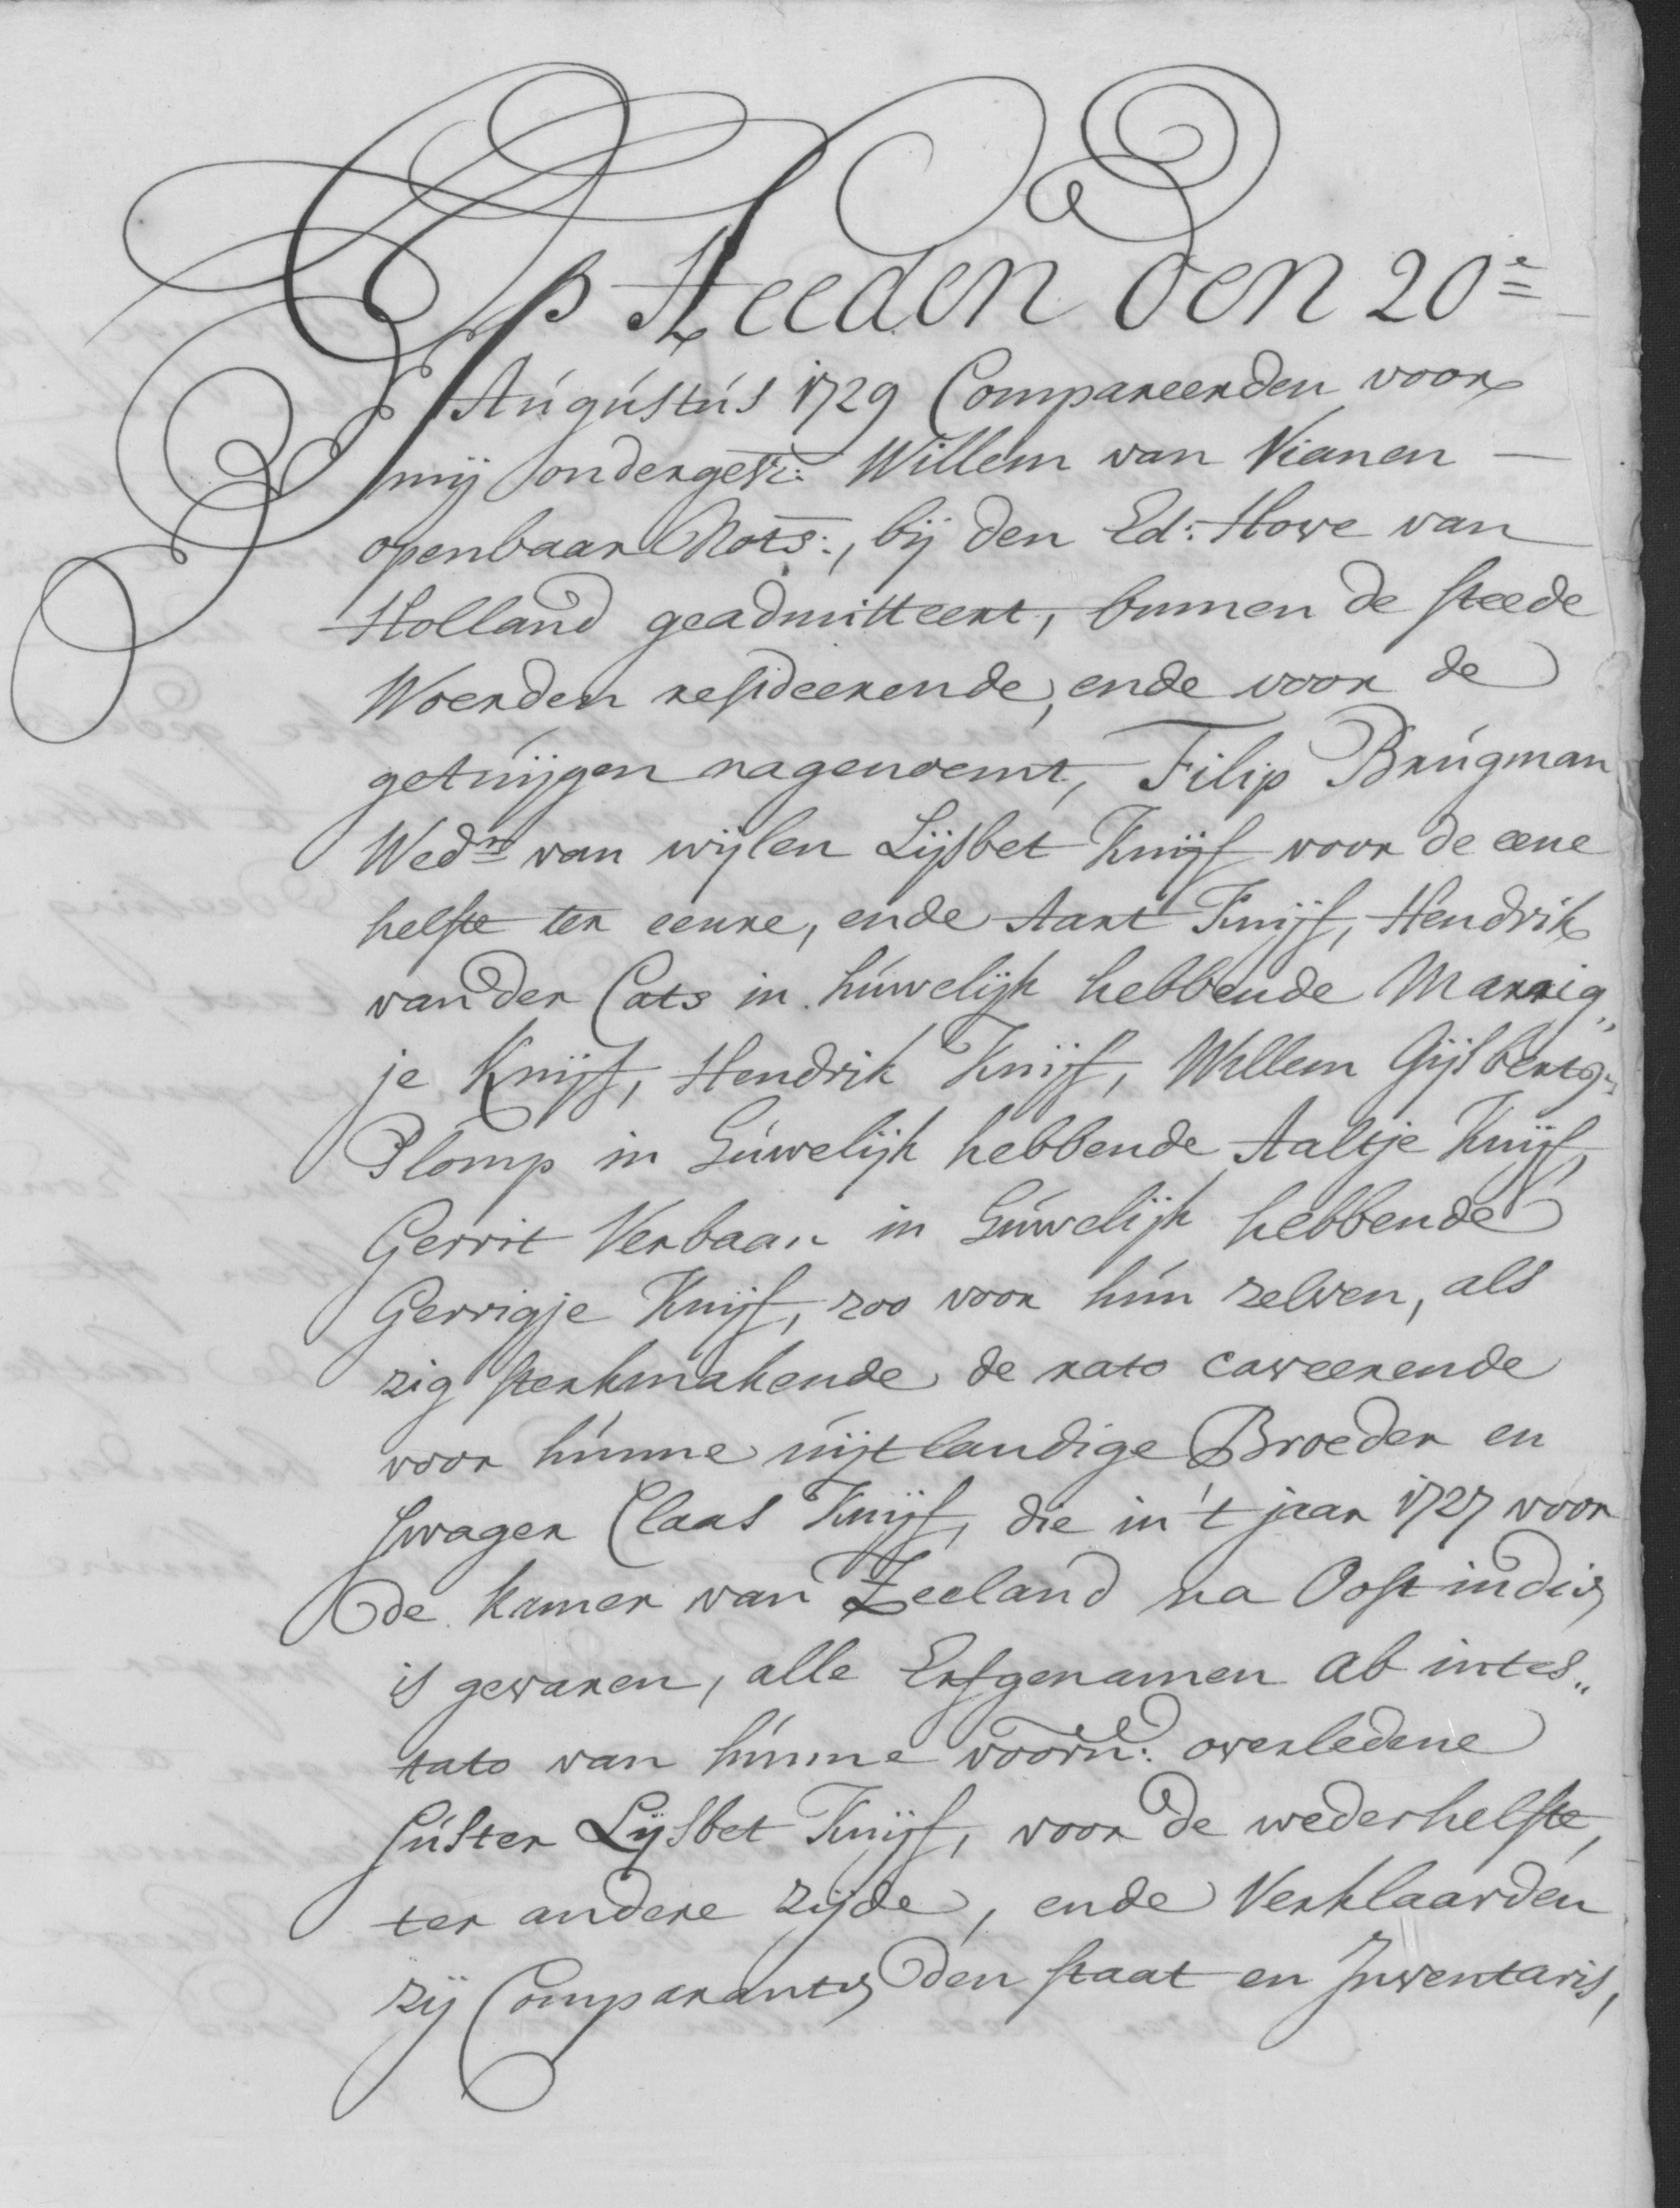 Op Heeden den 20e
Augustus 1729 Compareerden voor
mij onderges: Willem van Vianen
openbaar Nots:, bij den Ed: Hove van
Holland geadmitteert, binnen de steede
Woerden resideerende, ende voor de
getuijgen nagenoemt, Filip Brugman
Wednr van wijlen Lijsbet Knijf voor de eene
helfte ter eenre, ende Aart Knijf, Hendrik
vander Cats in huwelijk hebbende Marrig„
je Knijf, Hendrik Knijf, Willem Gijsbertsz:
Plomp in Huwelijk hebbende Aaltje Knijf,
Gerrit Verbaan in Huwelijk hebbende
Gerrigje Knijf, zoo voor hun zelven, als
zig sterkmakende de rato caveerende
voor hunne uijtlandige Broeder en
swager Claas Knijf, die in 't jaar 1727 voor
de kamer van Zeeland na Oostindien
is gevaren, alle Erfgenamen ab intes„
tato van hunne voorn: overledene
Suster Lijsbet Knijf, voor de wederhelfte,
ter andere zijde, ende Verklaarden
zij Comparanten den staat en Inventaris,